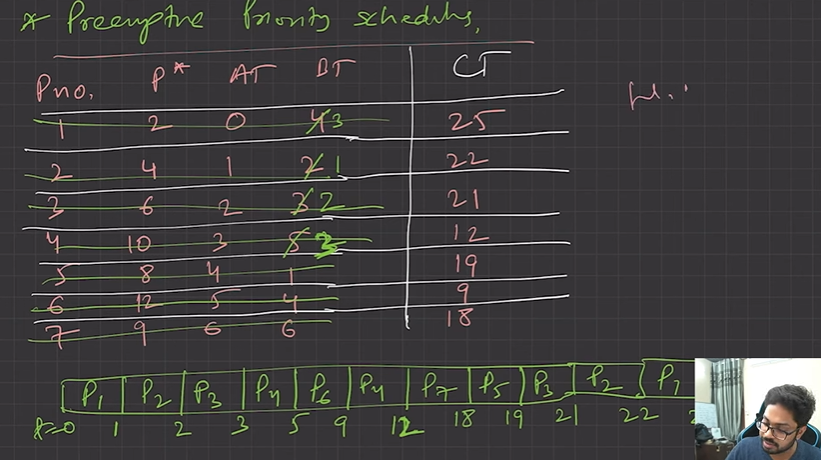 * Preemptive Priority scheduling,
Pno. P* AT BT CT
1 2 0 4 3 25
2 4 1 2 1 22
3 6 2 3 2 21
4 10 3 5 3 12
5 8 4 1 19
6 12 5 4 9
7 9 6 6 18
P1 P2 P3 P4 P6 P4 P7 P5 P3 P2 P1
t=0 1 2 3 5 9 12 18 19 21 22 2